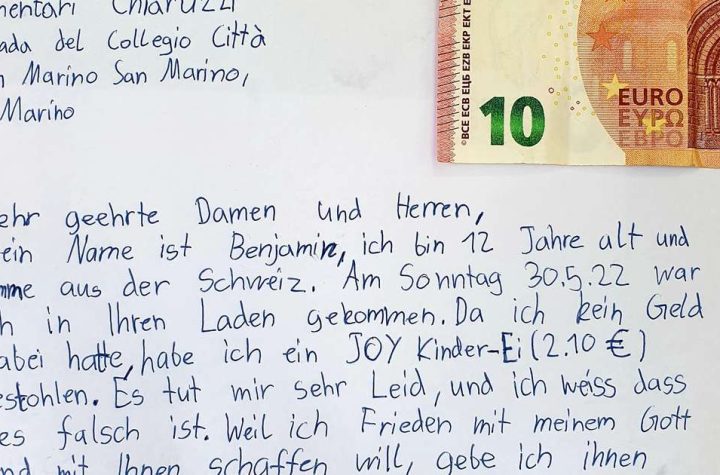 mentari Chiaruzzi
ada del Collegio Città
n Marino San Marino,
Marino
©BCE ECB ЕЦБ EZB EKP EKT
10
EURO
ΕΥΡΩ
ЕВРО
ehr geehrte Damen und Herren,
ein Name ist Benjamin, ich bin 12 Jahre alt und
mme aus der Schweiz. Am Sonntag 30.5.22 war
h in Ihren Laden gekommen. Da ich kein Geld
abei hatte, habe ich ein JOY Kinder-Ei (2.10 €)
estohlen. Es tut mir sehr Leid, und ich weiss dass
es falsch ist. Weil ich Frieden mit meinem Gott
nd mit Ihnen schaffen will, gebe ich ihnen